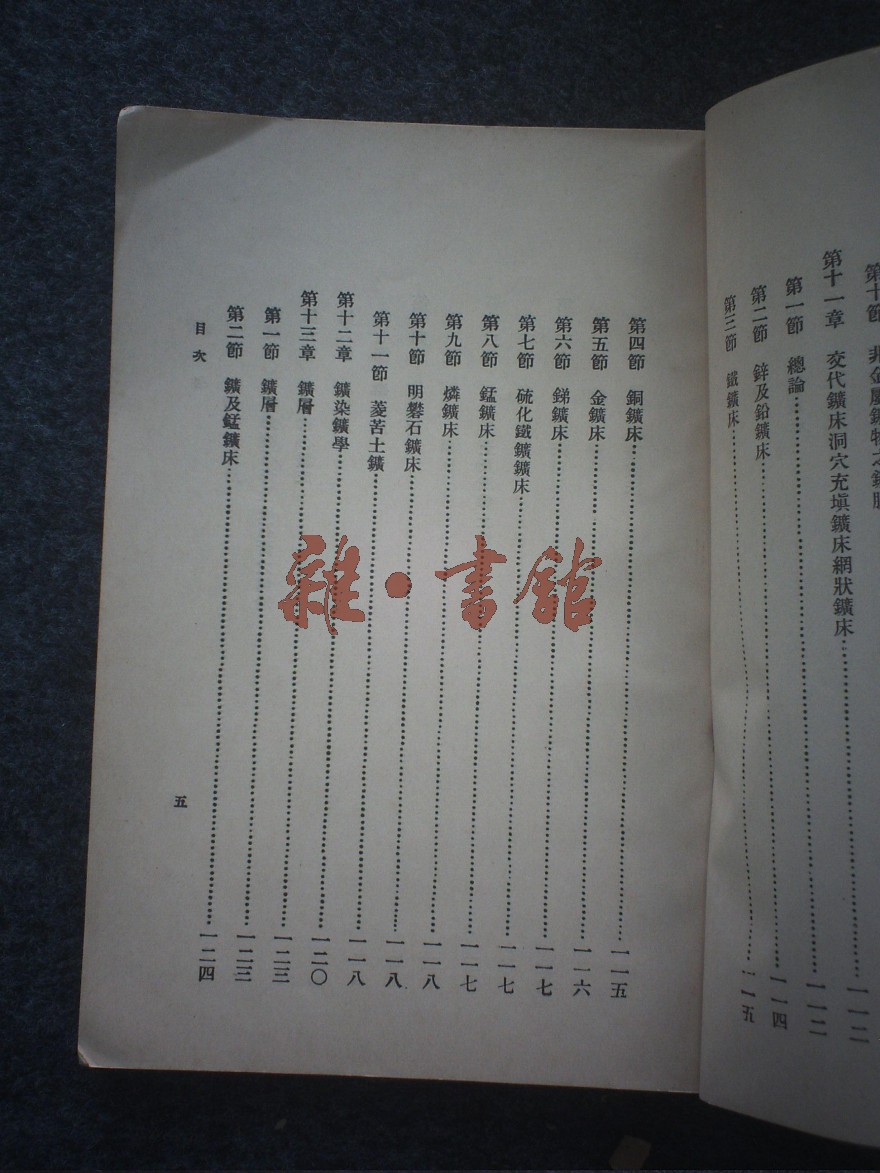 第十節 非金屬鑛物之鑛脈
第十一章 交代鑛床洞穴充塡鑛床網狀鑛床……一一二
第一節 總論……一一二
第二節 鋅及鉛鑛床……一一四
第三節 鐵鑛床……一一五
第四節 銅鑛床……一一五
第五節 金鑛床……一一六
第六節 銻鑛床……一一七
第七節 硫化鐵鑛鑛床……一一七
第八節 錳鑛床……一一七
第九節 燐鑛床……一一八
第十節 明礬石鑛床……一一八
第十一節 菱苦土鑛……一一八
第十二章 鑛染鑛學……一二〇
第十三章 鑛層……一二三
第一節 鑛層……一二三
第二節 鑛及錳鑛床……一二四
目次
五
雜·書館